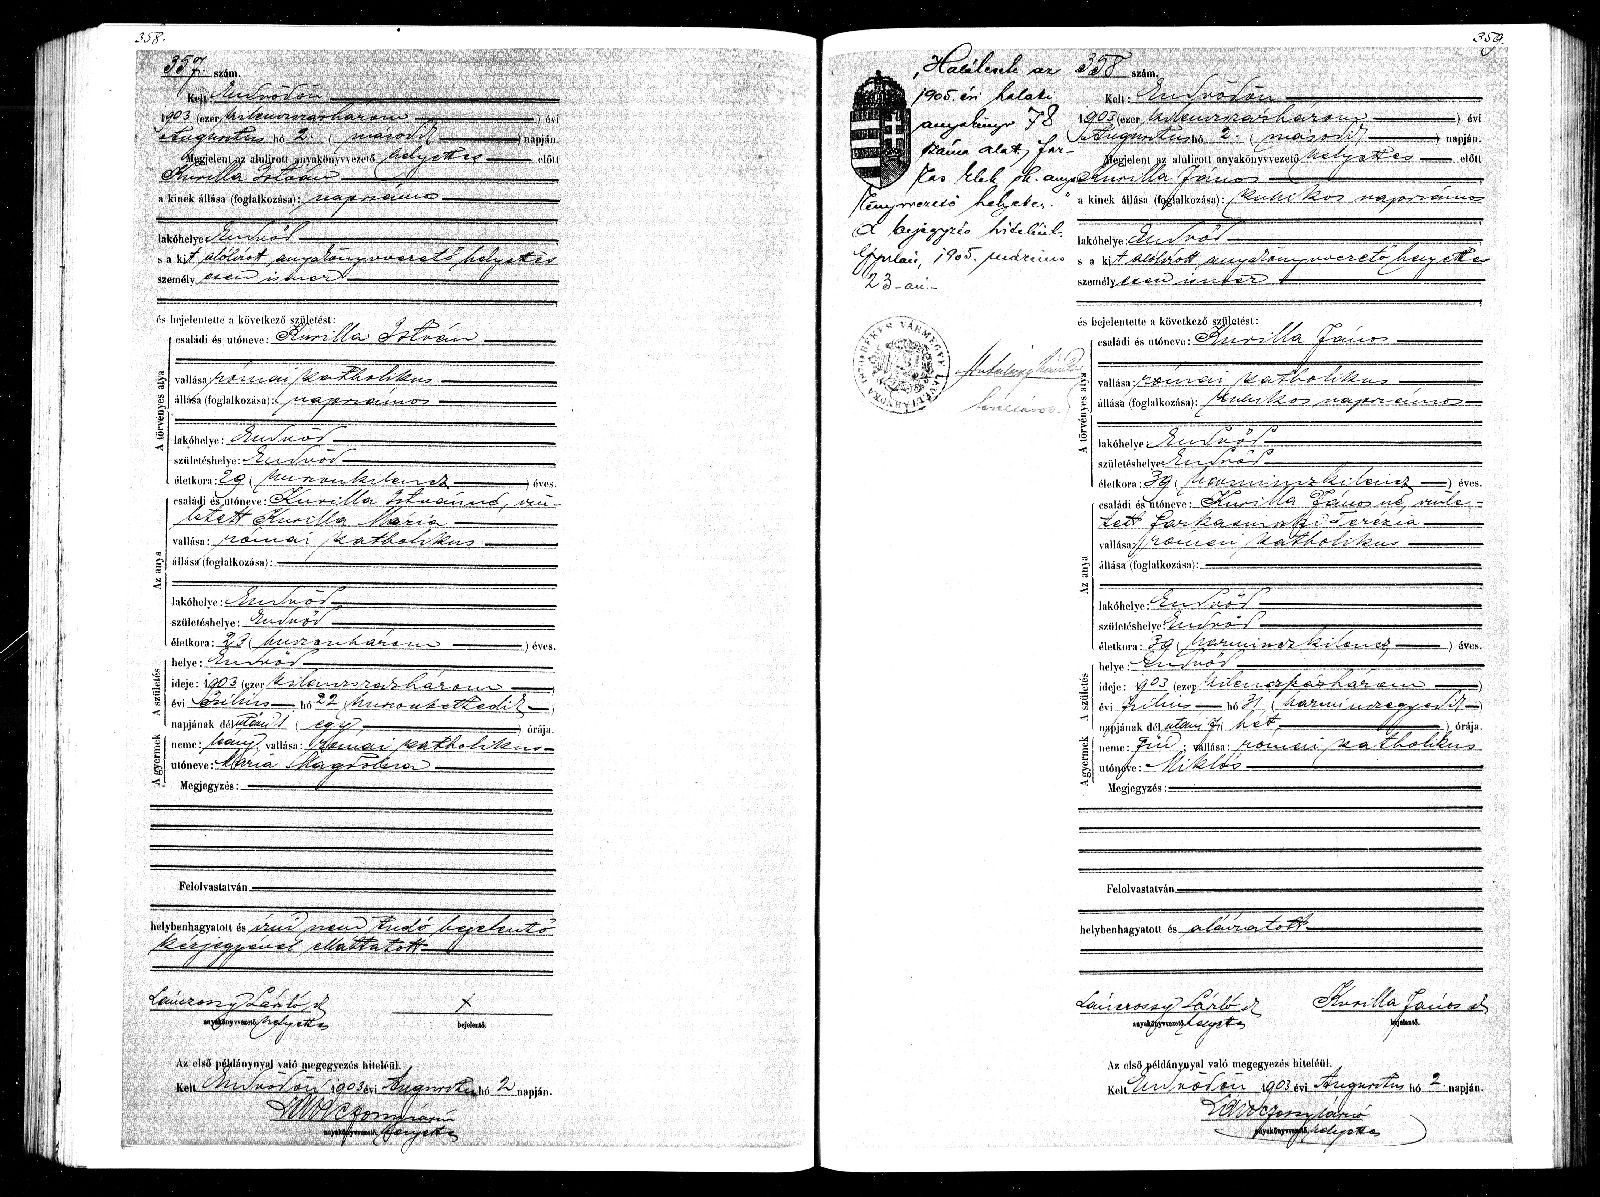 358.
357 szám.
Kelt Endrődön
1903 (ezer kilenczszázhárom) évi
Augusztus hó 2. (második) napján.
Megjelent az alulirott anyakönyvvezető helyettes előtt
Kurilla István
a kinek állása (foglalkozása): napszámos
lakóhelye: Endrőd
s a kit alólirott anyakönyvvezető helyettes
személyesen ismer
és bejelentette a következő születést:
A törvényes atya
családi és utóneve: Kurilla István
vallása: római katholikus
állása (foglalkozása): napszámos
lakóhelye: Endrőd
születéshelye: Endrőd
életkora: 29 (huszonkilencz) éves.
Az anya
családi és utóneve: Kurilla Istvánné, szü-
letett Kurilla Mária
vallása: római katholikus
állása (foglalkozása):
lakóhelye: Endrőd
születéshelye: Endrőd
életkora: 23 (huszonhárom) éves.
A születés
helye: Endrőd
ideje: 1903 (ezer kilenczszázhárom)
évi Julius hó 22 (huszonkettedik)
napjának délutáni 1 (egy) órája.
A gyermek
neme: leány, vallása: római katholikus
utóneve: Mária Magdolna
Megjegyzés:
Felolvastatván
helybenhagyatott és írni nem tudó bejelentő
kézjegyével elláttatott
Lánczossy László
anyakönyvvezető. helyettes
x
bejelentő.
Az első példánynyal való megegyezés hiteléül.
Kelt Endrődön 1903 évi Augusztus hó 2 napján.
anyakönyvvezető. helyettes
359.
„Halálesete az
1905. évi halotti
anyakönyv 78
száma alatt, Far-
kas Elek ph. anya-
könyvvezető helyettes."
A bejegyzés hiteléül.
Gyulai, 1905. március
23-án.
358 szám.
Kelt: Endrődön
1903 (ezer kilenczszázhárom) évi
Augusztus hó 2. (második) napján.
Megjelent az alulirott anyakönyvvezető helyettes előtt
Kurilla János
a kinek állása (foglalkozása): kubikos napszámos
lakóhelye: Endrőd
s a kit alólirott anyakönyvvezető helyettes
személyesen ismer
és bejelentette a következő születést:
A törvényes atya
családi és utóneve: Kurilla János
vallása: római katholikus
állása (foglalkozása): kubikos napszámos
lakóhelye: Endrőd
születéshelye: Endrőd
életkora: 39 (harminczkilencz) éves.
Az anya
családi és utóneve: Kurilla Jánosné, szüle-
tett Farkasinszki Terézia
vallása: római katholikus
állása (foglalkozása):
lakóhelye: Endrőd
születéshelye: Endrőd
életkora: 39 (harminczkilencz) éves.
A születés
helye: Endrőd
ideje: 1903 (ezer kilenczszázhárom)
évi Julius hó 31 (harminczegyedik)
napjának délutáni 7 (hét) órája.
A gyermek
neme: fiú; vallása: római katholikus
utóneve: Miklós
Megjegyzés:
Felolvastatván
helybenhagyatott és aláiratott
Lánczossy László
anyakönyvvezető. helyettes
Kurilla János
bejelentő.
Az első példánynyal való megegyezés hiteléül.
Kelt Endrődön 1903 évi Augusztus hó 2. napján.
anyakönyvvezető. helyettes